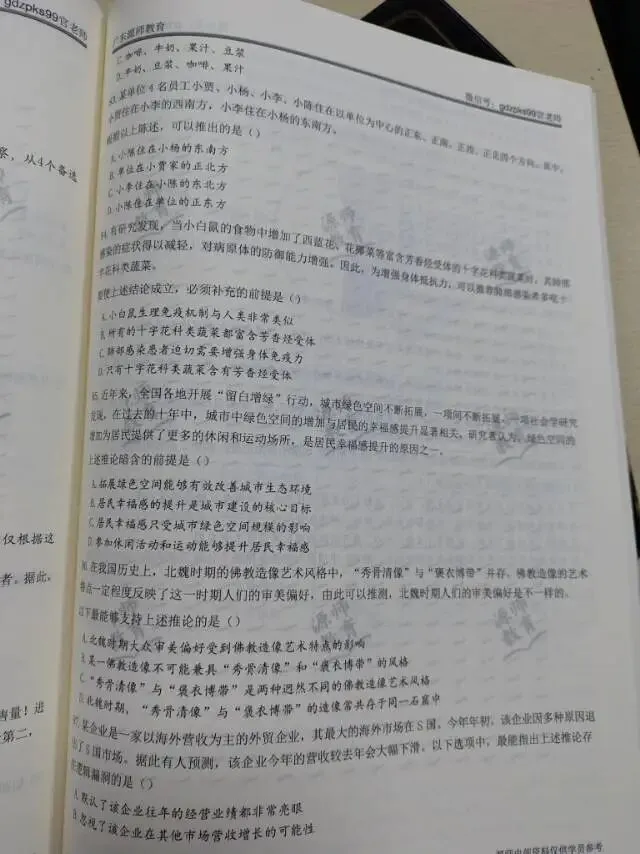 gdzpks99官老师
广东源师教育
微信号：gdzpks99官老师
察，从4个备选
仅根据这
者。据此，
售量！进
第二，
C.咖啡、牛奶、果汁、豆浆
D.牛奶、豆浆、咖啡、果汁
93.某单位4名员工小贾、小杨、小李、小陈住在以单位为中心的正东、正南、正西、正北四个方向。其中，
小贾住在小李的西南方，小李住在小杨的东南方。
根据以上陈述，可以推出的是（）
A.小陈住在小杨的东南方
B.单位在小贾家的正北方
C.小李住在小陈的东北方
D.小陈住在单位的正东方
94.有研究发现，当小白鼠的食物中增加了西蓝花、花椰菜等富含芳香烃受体的十字花科类蔬菜时，其肺部
感染的症状得以减轻，对病原体的防御能力增强。因此，为增强身体抵抗力，可以推荐肺部感染者多吃十
字花科类蔬菜。
要使上述结论成立，必须补充的前提是（）
A.小白鼠生理免疫机制与人类非常类似
B.所有的十字花科类蔬菜都富含芳香烃受体
C.肺部感染患者迫切需要增强身体免疫力
D.只有十字花科类蔬菜含有芳香烃受体
95.近年来，全国各地开展“留白增绿”行动，城市绿色空间不断拓展，一项间不断拓展，一项社会学研究
发现，在过去的十年中，城市中绿色空间的增加与居民的幸福感提升显著相关。研究者认为，绿色空间的
增加为居民提供了更多的休闲和运动场所，是居民幸福感提升的原因之一。
上述推论暗含的前提是（）
A.拓展绿色空间能够有效改善城市生态环境
B.居民幸福感的提升是城市建设的核心目标
C.居民幸福感只受城市绿色空间规模的影响
D.参加休闲活动和运动能够提升居民幸福感
96.在我国历史上，北魏时期的佛教造像艺术风格中，“秀骨清像”与“褒衣博带”并存。佛教造像的艺术
特点一定程度反映了这一时期人们的审美偏好，由此可以推测，北魏时期人们的审美偏好是不一样的。
以下最能够支持上述推论的是（）
A.北魏时期大众审美偏好受到佛教造像艺术特点的影响
B.某一佛教造像不可能兼具“秀骨清像”和“褒衣博带”的风格
C.“秀骨清像”与“褒衣博带”是两种迥然不同的佛教造像艺术风格
D.北魏时期，“秀骨清像”与“褒衣博带”的造像常共存于同一石窟中
97.某企业是一家以海外营收为主的外贸企业，其最大的海外市场在S国。今年年初，该企业因多种原因退
出了S国市场。据此有人预测，该企业今年的营收较去年会大幅下滑。以下选项中，最能指出上述推论存
在逻辑漏洞的是（）
A.默认了该企业往年的经营业绩都非常亮眼
B.忽视了该企业在其他市场营收增长的可能性
源师内部资料仅供学员参考
源师
教育
源师
教育
源师
教育
源师
教育